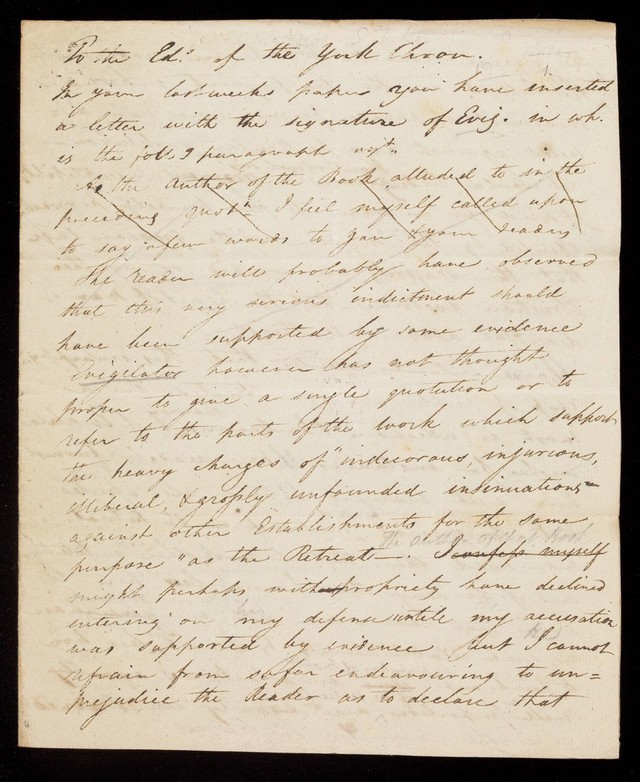 To the Edr. of the York Chron.
In your last weeks paper you have inserted
a letter with the signature of Evig. in wh.
is the follg paragraph
As the Author of the Book alluded to in the
preceding quotn I feel myself called upon
to say a few words to you & your readers
The reader will probably have observed
that this very serious indictment should
have been supported by some evidence
Evigilator however has not thought
proper to give a single quotation or to
refer to the parts of the work which support
the heavy charges of "indecorous, injurious,
illiberal, & grossly unfounded insinuations
against other Establishments for the same
purpose" as the Retreat—. The author of
I confess myself
might perhaps with propriety have declined
entering on my defense untile my accusation
was supported by evidence but I cannot
refrain from so far endeavouring to un=
prejudice the Reader as to declare that